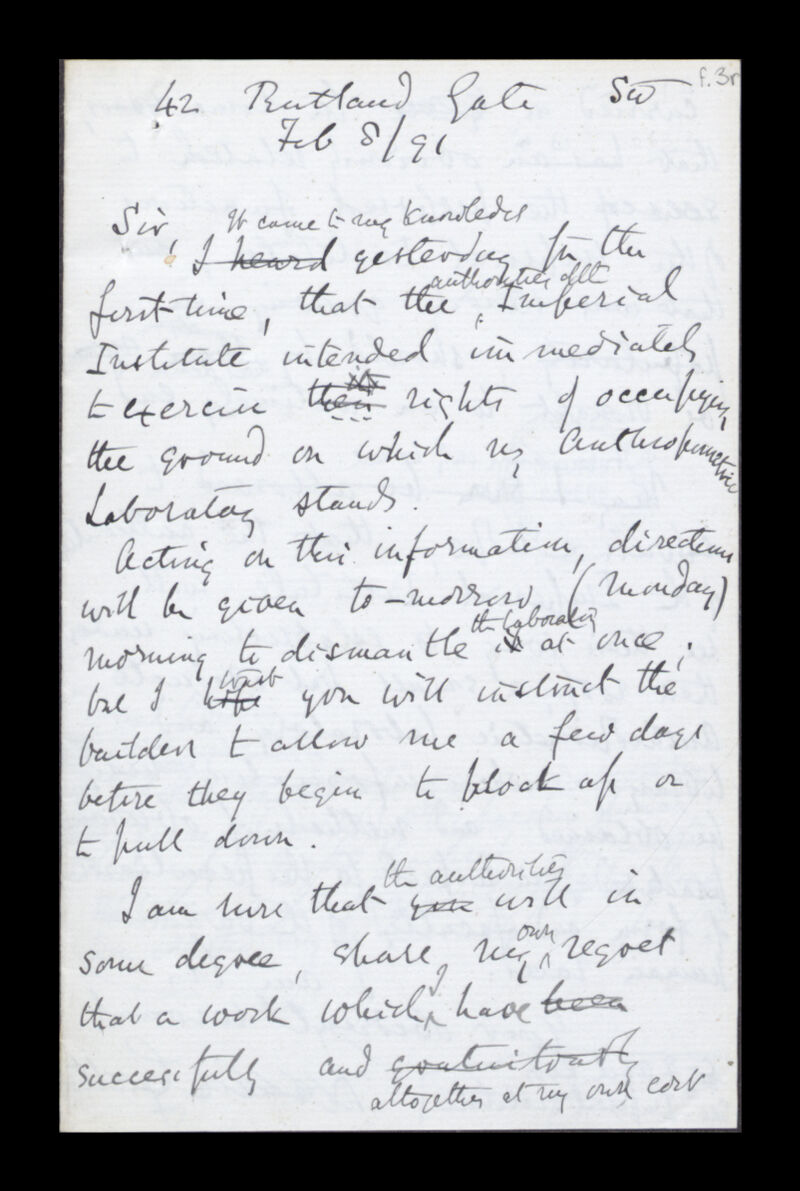 f.3r
42 Rutland Gate SW
Feb 8/91
Sir, It came to my knowledge
I heard yesterday for the
authorities of the
first time, that the Imperial
Institute intended immediately
to exercise their rights of occupying
the ground on which my Anthropometric
Laboratory stands.
Acting on this information, directions
will be given to-morrow (Monday)
the Laboratory
morning to dismantle it at once;
trust
but I hope you will instruct the
builders to allow me a few days
before they begin to block up or
to pull down.
the authorities
I am sure that you will in
own
some degree, share my regret
I
that a work which have been
successfully and gratuitously
altogether at my own cost